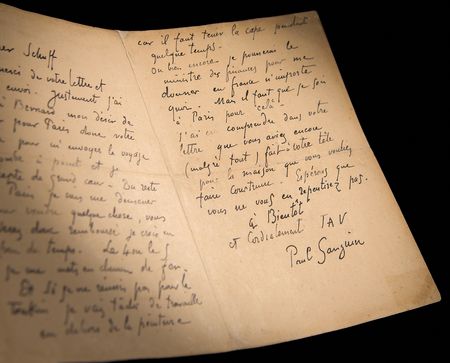 er Schuff
merci de votre lettre et
envoi. Justement j'ai
à Bernard mon désir de
pour Paris donc votre
pour m'envoyer le voyage
tombe à point et je
de grand cœur. Du reste
Paris je vais me
vendre quelque chose, vous
donc rembourser je crois en
de temps. Le
je me mets en chemin de fer.
Si je ne réussis pas pour le
Tonkin je vais tâcher de travailler
en dehors de la peinture
car il faut tenir la cape pendant
quelque temps.
Ou bien encore je pourrai le
ministre des finances pour me
donner en france n'importe
quoi. Mais il faut que je sois
à Paris pour cela.
J'ai cru comprendre dans votre
lettre que vous aviez encore
(malgré tout) fait à votre tête
pour la maison que vous voulez
faire construire. Espérons que
vous ne vous en repentirez pas.
à Bientôt
et Cordialement TAV
Paul Gauguin